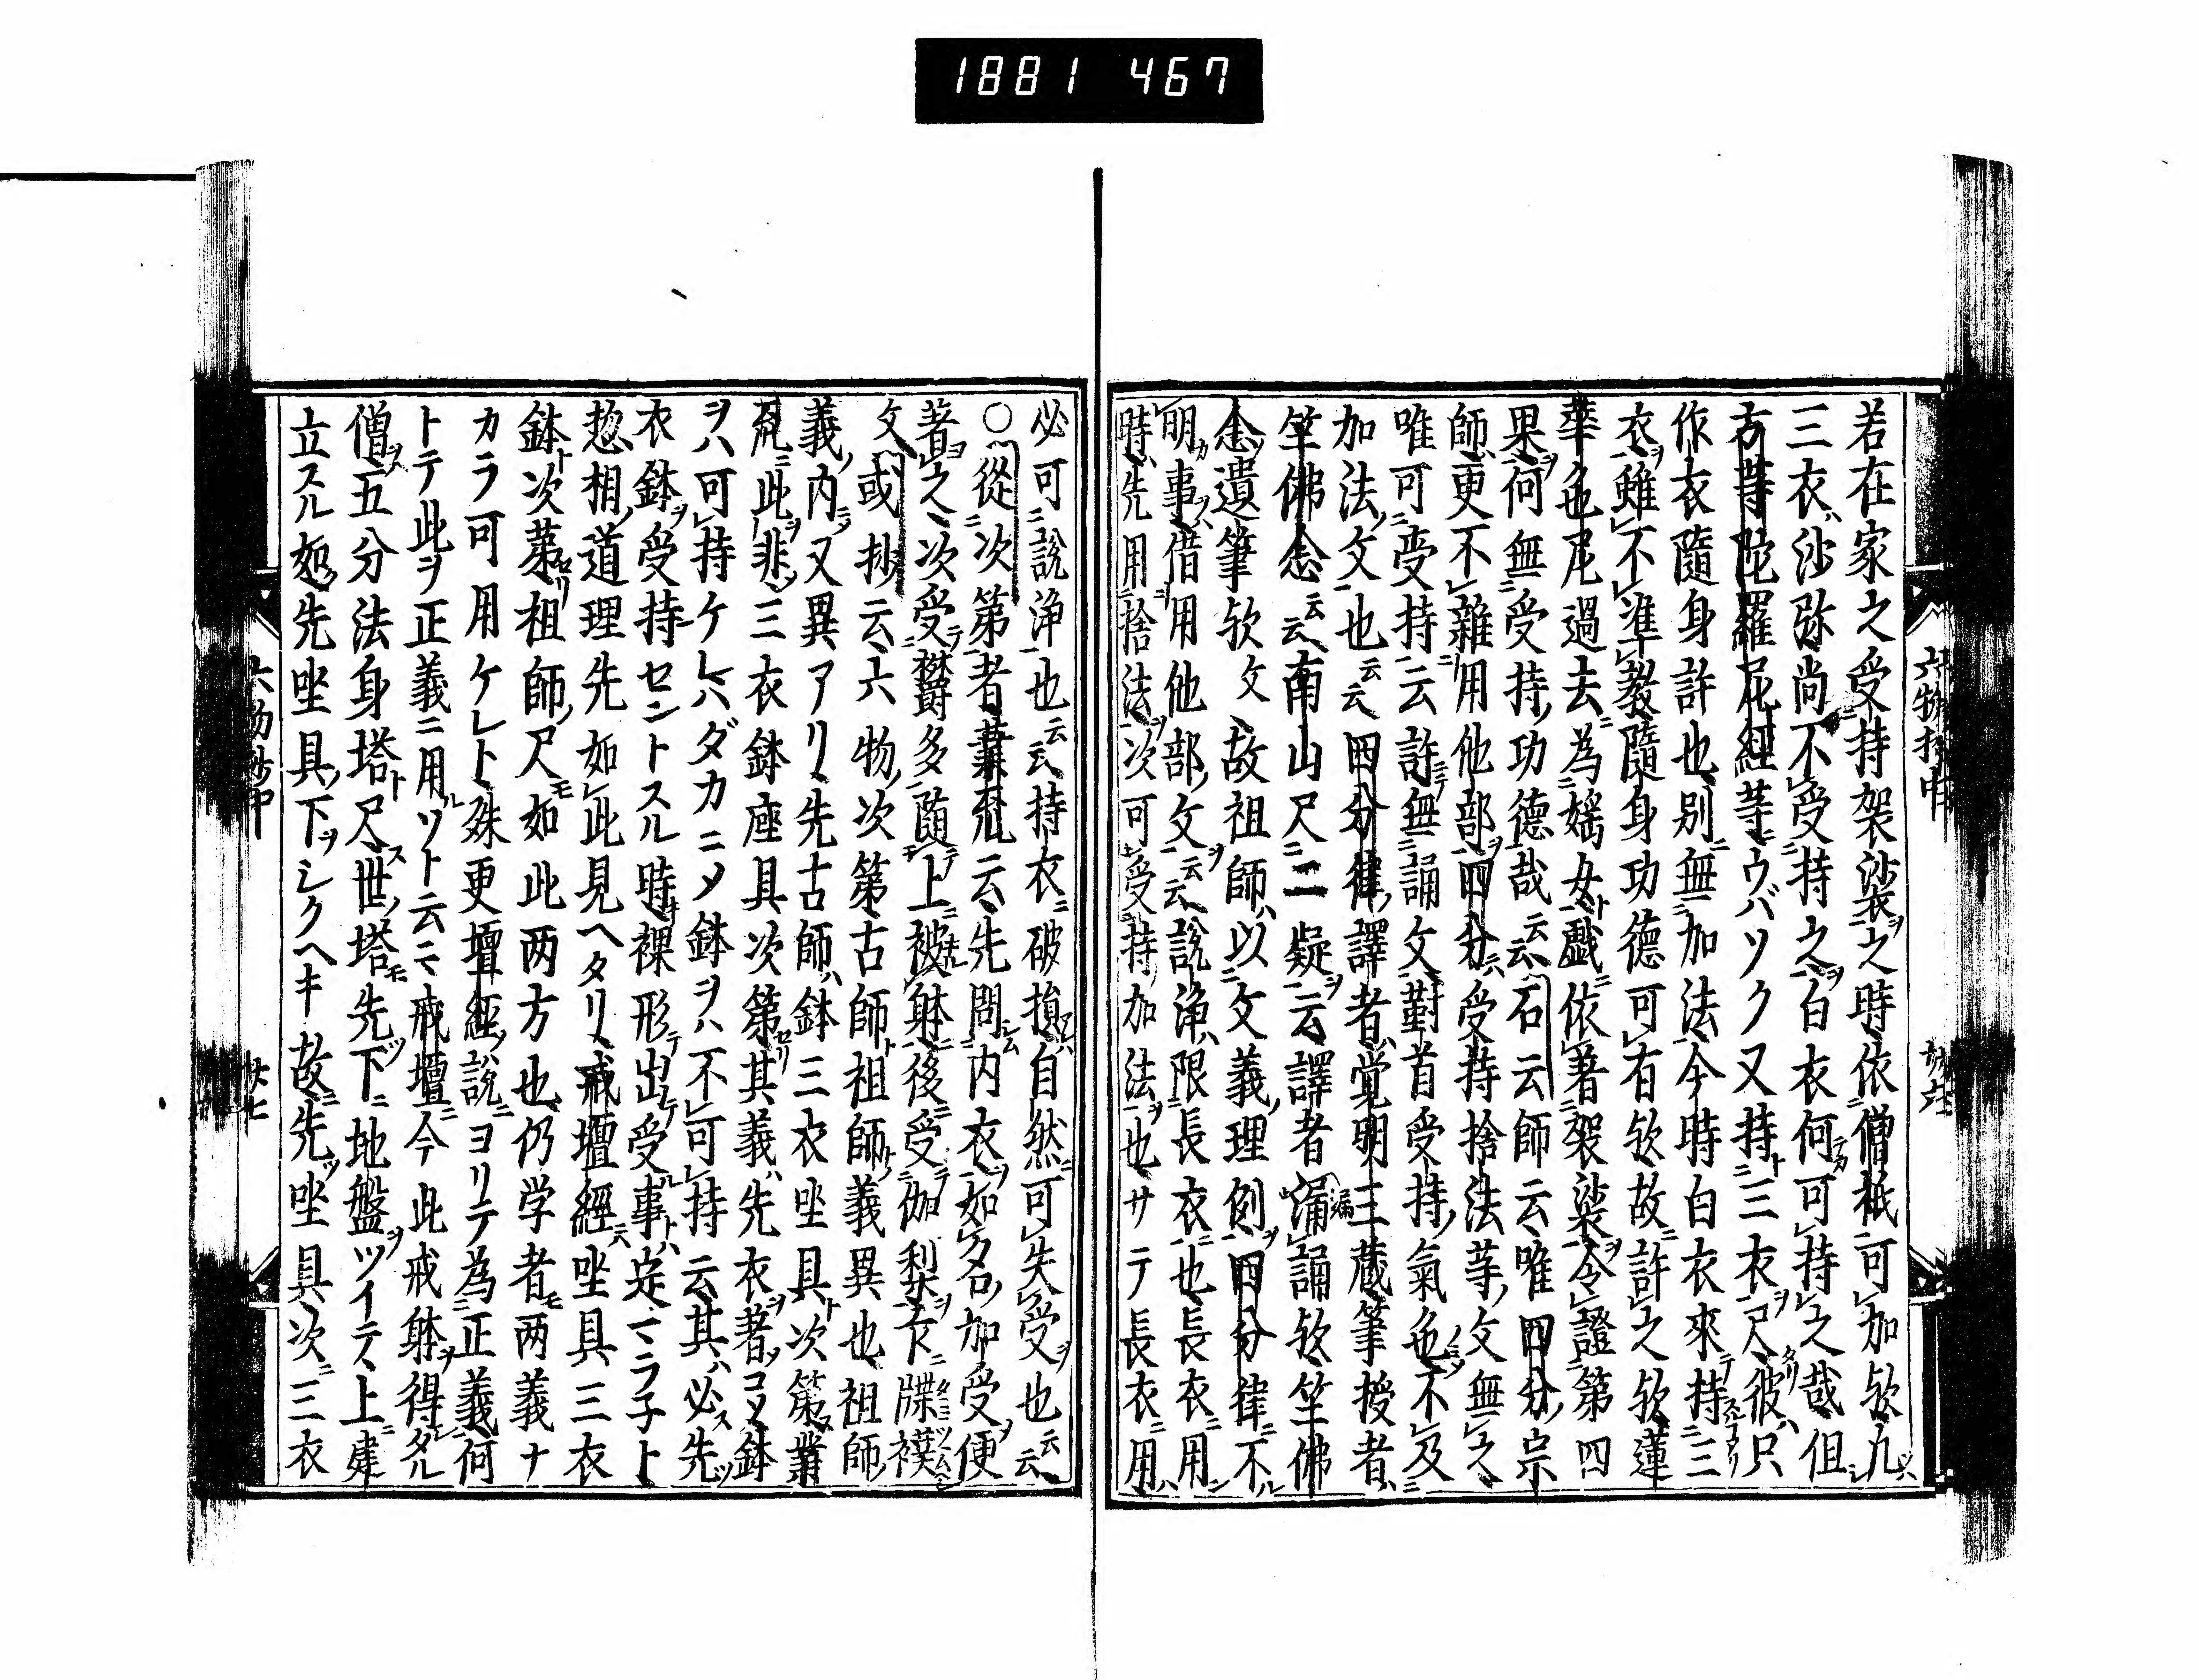 1881 467
若在家之受持袈裟之時依僧祇可加欤九
三衣沙弥尚不受持之白衣何可持之哉但
方等陀羅尼經等ウバソク又持三衣尺彼只
作衣隨身許也別無加法今時白衣來持三
衣雖不準教隨身功德可有欤故許之欤蓮
華色尼過去為婬女戯依著袈裟令證第四
果何無受持功德哉云云石云師云唯四分宗
師更不雜用他部四分受持捨法等文無之
唯可受持云許無誦文對首受持氣色不及
加法文也云云四分律譯者覚明三蔵筆授者
竺佛念云云南山尺二疑云譯者漏誦欤竺佛
念遺筆欤文故祖師以文義理例四分律不
明事借用他部文云云說淨限長衣也長衣用
時先用捨法次可受持加法也サテ長衣用
六物抄中
必可說淨也云云持衣破損自然可失受也云云
○從次第者業疏云先問内衣如名加受便
著之次受欝多隨上被躰後受伽梨下牒襆
文或抄云六物次第古師祖師義異也祖師
義内又異アリ先古師鉢三衣坐具次第業
疏此非三衣鉢座具次第其義先衣著コメ鉢
ヲハ可持ケレハダカニメ鉢ヲハ不可持云其必先
衣鉢受持セントスル時裸形出受事定マラ子ト
惣相道理先如此見ヘタリ戒壇經坐具三衣
鉢次第祖師尺如此両方也仍学者両義ナ
カラ可用ケレト殊更壇經說ヨリテ為正義何
トテ此ヲ正義ニ用ツト云ニ戒壇今此戒躰得タル
僧五分法身塔尺世塔先下地盤ツイテ上建
立スル如先坐具下シクヘキ故先坐具次三衣
六物抄中
廿七